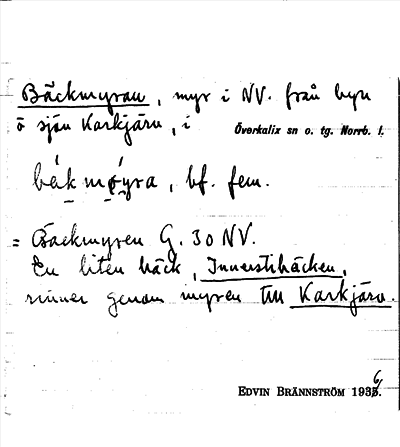 Bäckmyran, myr i NV. från byn
ö sjön Karkjärv, i Överkalix sn o. tg. Norrb. l.
bäkmøyra, bf. fem.
= Bäckmyren G. 30 NV.
En liten bäck, Innerstibäcken,
rinner genom myren till Karkjärv.
EDVIN BRÄNNSTRÖM 1936.